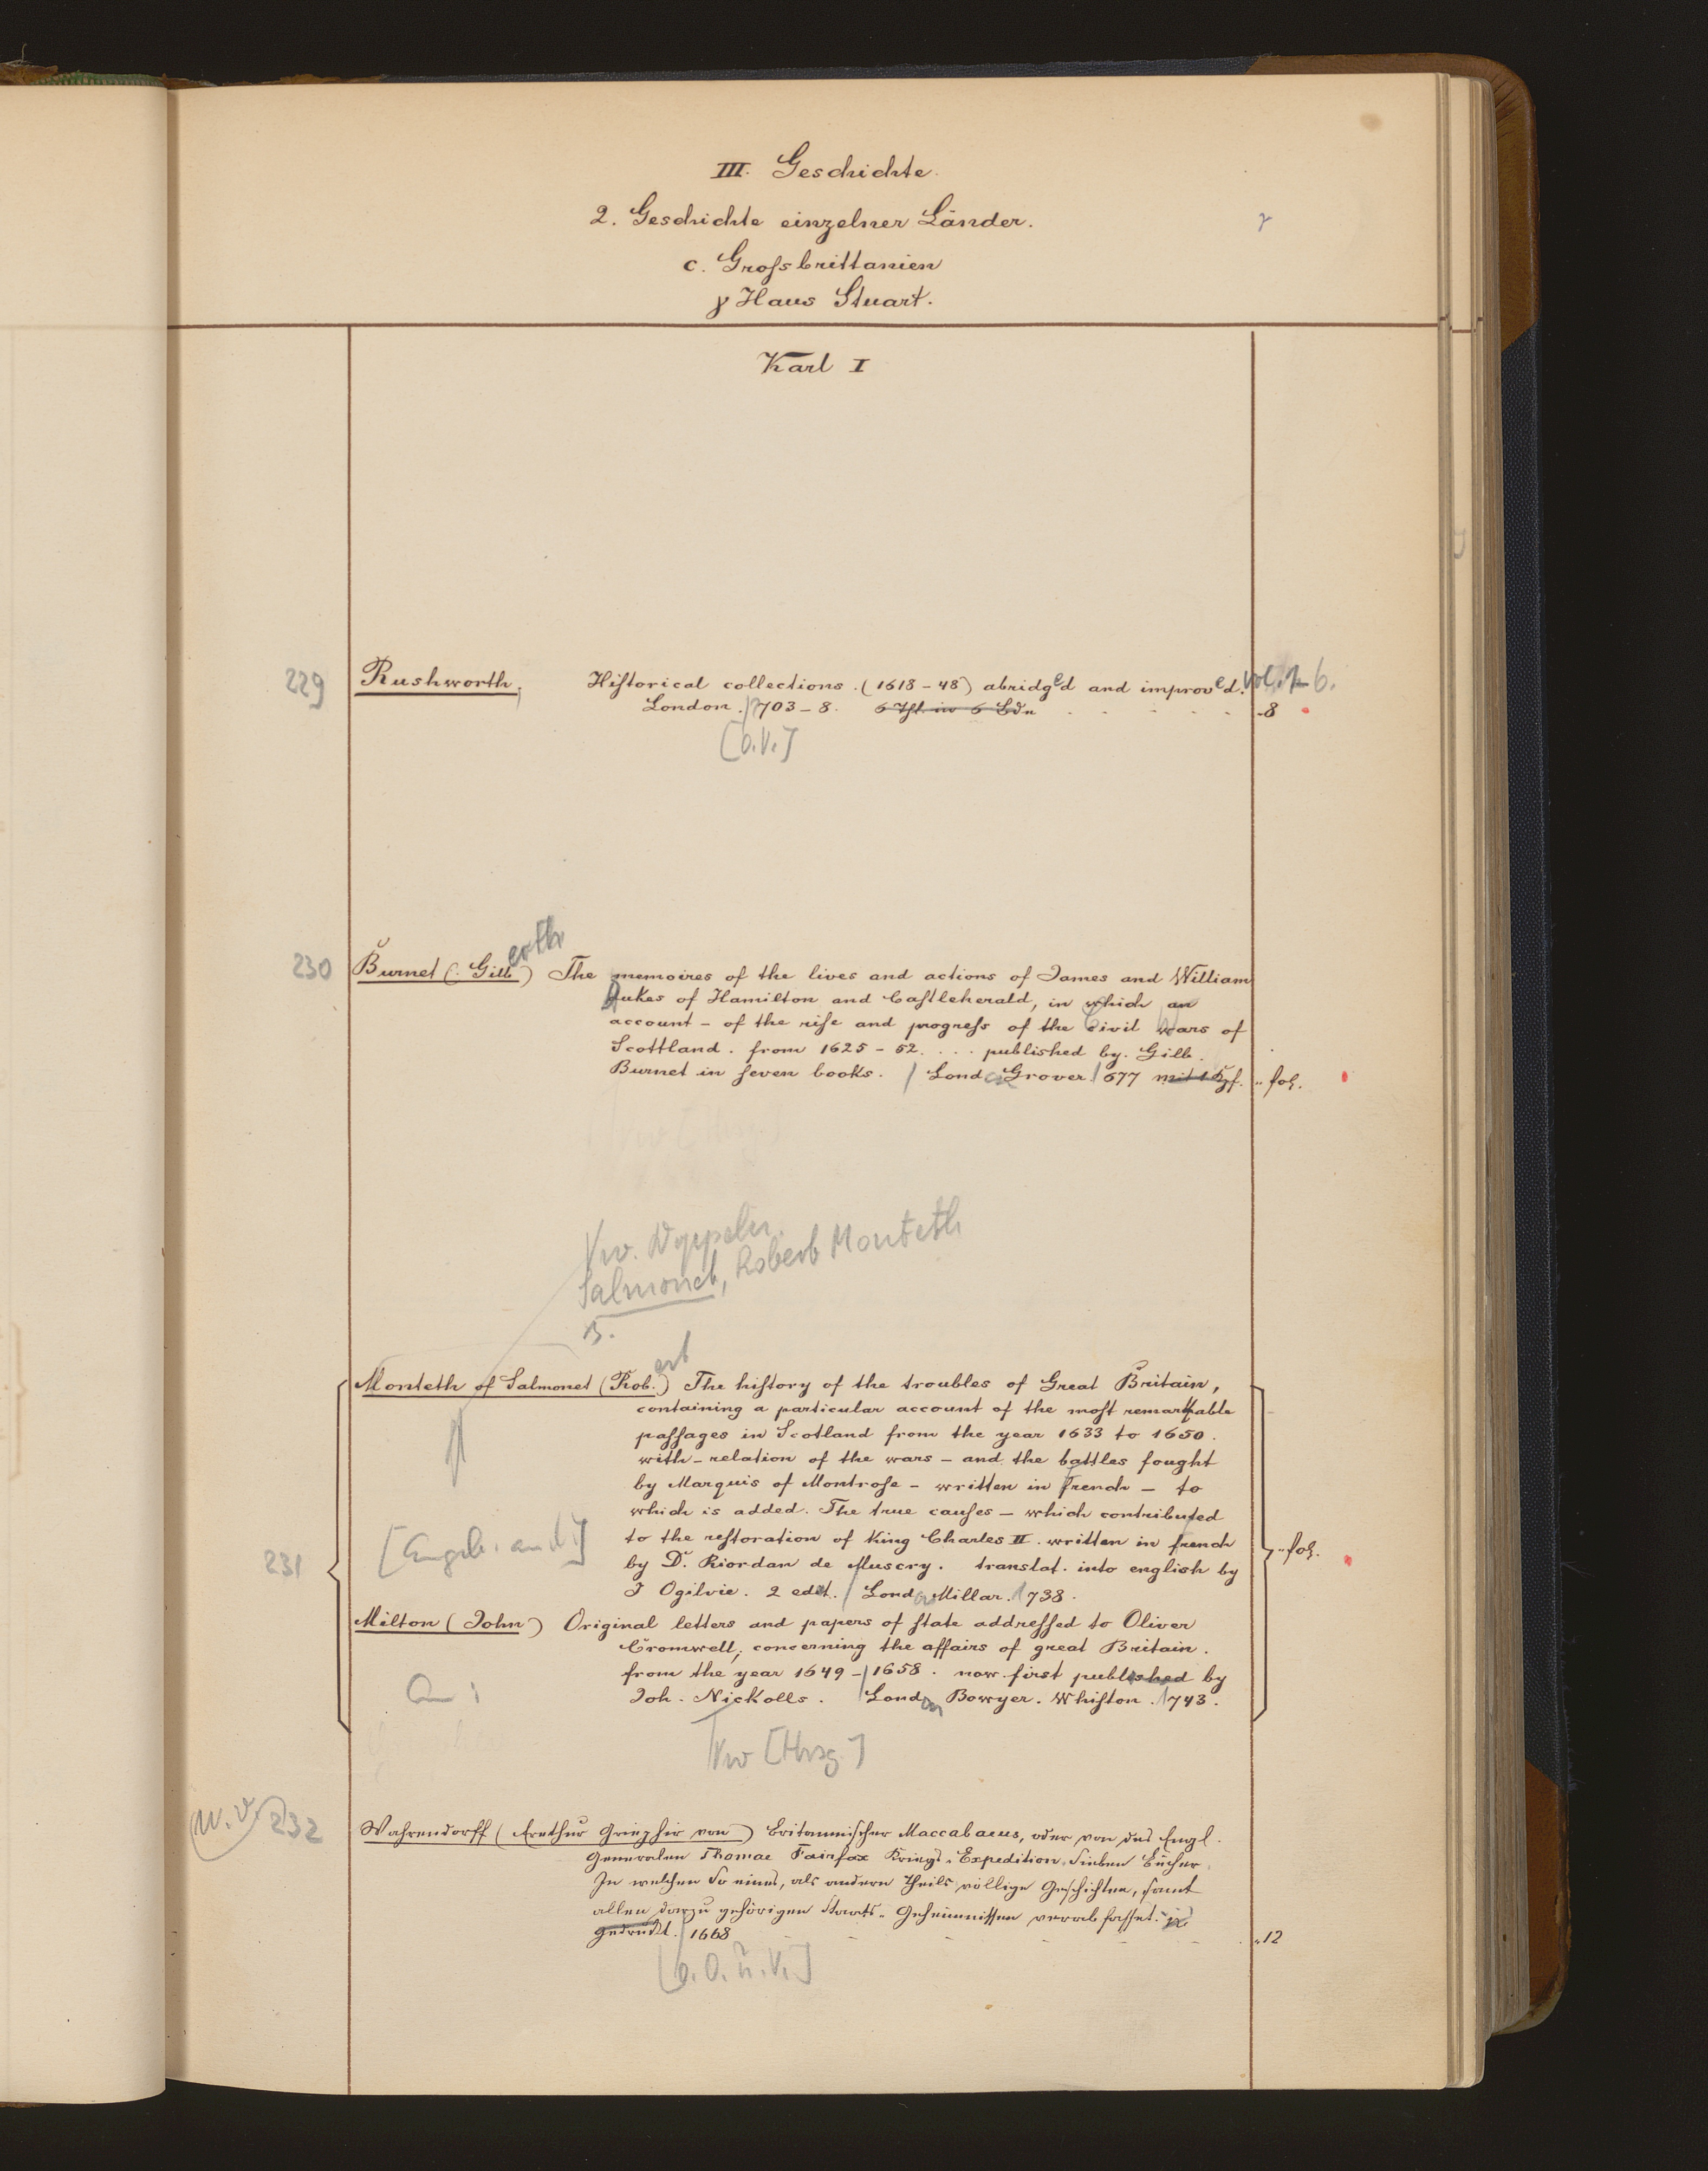 III. Geschichte.
2. Geschichte einzelner Länder.
γ
c. Grossbrittanien
γ Haus Stuart.
Karl I
229 Rushworth, Historical collections. (1618-48) abridged and improved. Vol. 1-6.
London. 1703-8. 6 Thl. in 6 Bdn - - - - - -8
[o.V.]
230 Burnet (. Gilbert) The memoires of the lives and actions of James and William
Dukes of Hamilton and Castleherald, in which an
account - of the rise and progress of the Civil Wars of
Scottland. from 1625-52. ... published by. Gilb.
Burnet in seven books. / London Grover. 1677 mit Kpf. " fol.
Vw. Doppeln.
Salmonet, Robert Monteth
Monteth of Salmonet (Robert) The history of the troubles of Great Britain,
containing a particular account of the most remarkable
passages in Scotland from the year 1633 to 1650.
with - relation of the wars - and the battles fought
by Marquis of Montrose - written in French - to
which is added. The true causes - which contributed
[Engl. and.] to the restoration of King Charles II. written in french
231 by Dr. Riordan de Muscry. translat. into english by " fol.
J Ogilvie. 2 edit. / London Millar. 1738.
Milton (John) Original letters and papers of state addressed to Oliver
Cromwell, concerning the affairs of great Britain.
from the year 1649-1658. now first published by
An: Joh. Nickolls. / London Bowyer. Whiston. 1743.
Vw [Hrsg.]
(W.V.) 232 Wahrendorff (Erethür Griephir von) Britannischer Maccabaeus, oder von des Engl.
Generalen Thomae Fairfax Kriegs-Expedition, Sieben Bücher,
In welchen so eines, als andern Theils völlige Geschichten, samt
allen darzu gehörigen Staats-Geheimnissen verabfasset.
gedruckt. 1668 - - - - - - "12
[o.O.u.V.]